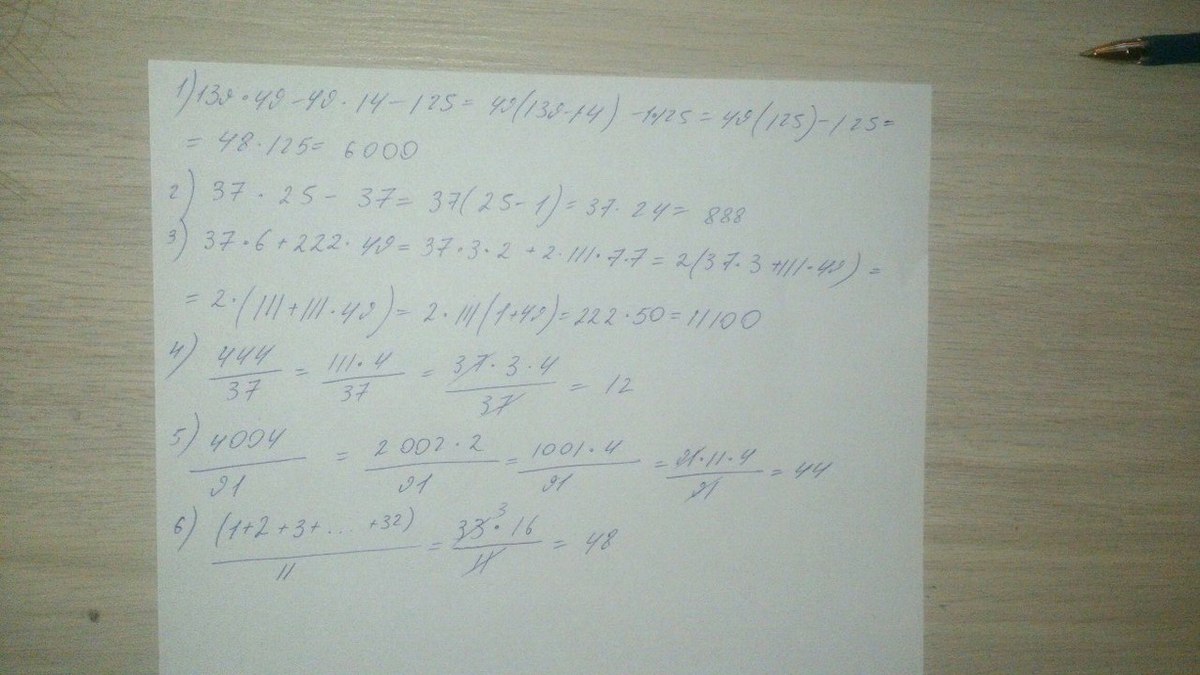 1) 139 · 49 - 49 · 14 - 125 = 49(139-14) - 1·125 = 49(125) - 125 =
= 48 · 125 = 6000
2) 37 · 25 - 37 = 37(25-1) = 37 · 24 = 888
3) 37 · 6 + 222 · 49 = 37 · 3 · 2 + 2 · 111 · 7 · 7 = 2(37 · 3 + 111 · 49) =
= 2 · (111 + 111 · 49) = 2 · 111(1+49) = 222 · 50 = 11100
4) 444/37 = 111 · 4/37 = 37 · 3 · 4/37 = 12
5) 4004/91 = 2002 · 2/91 = 1001 · 4/91 = 91 · 11 · 4/91 = 44
6) (1+2+3+ ... +32)/11 = 33 3 · 16/11 = 48